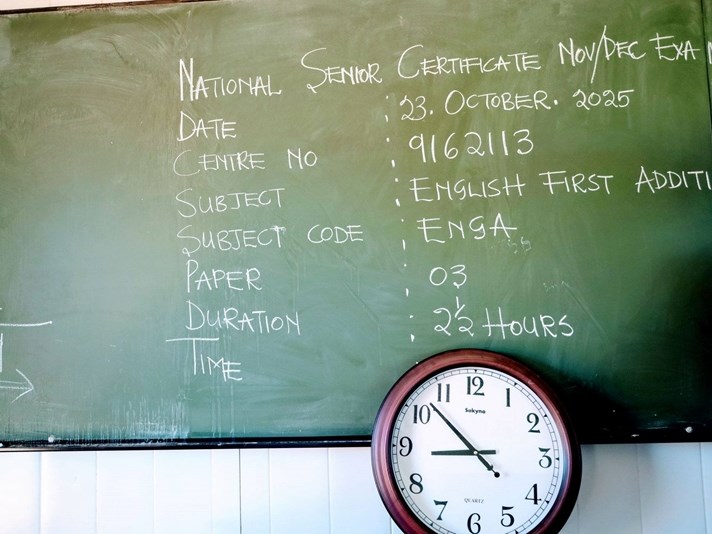 NATIONAL SENIOR CERTIFICATE NOV/DEC EXAM
DATE : 23. OCTOBER. 2025
CENTRE NO : 9162113
SUBJECT : ENGLISH FIRST ADDITI
SUBJECT CODE : ENGA
PAPER : 03
DURATION : 2½ HOURS
TIME
12
11 1
Sokyno
10 2
9 3
8 4
QUARTZ
7 5
6